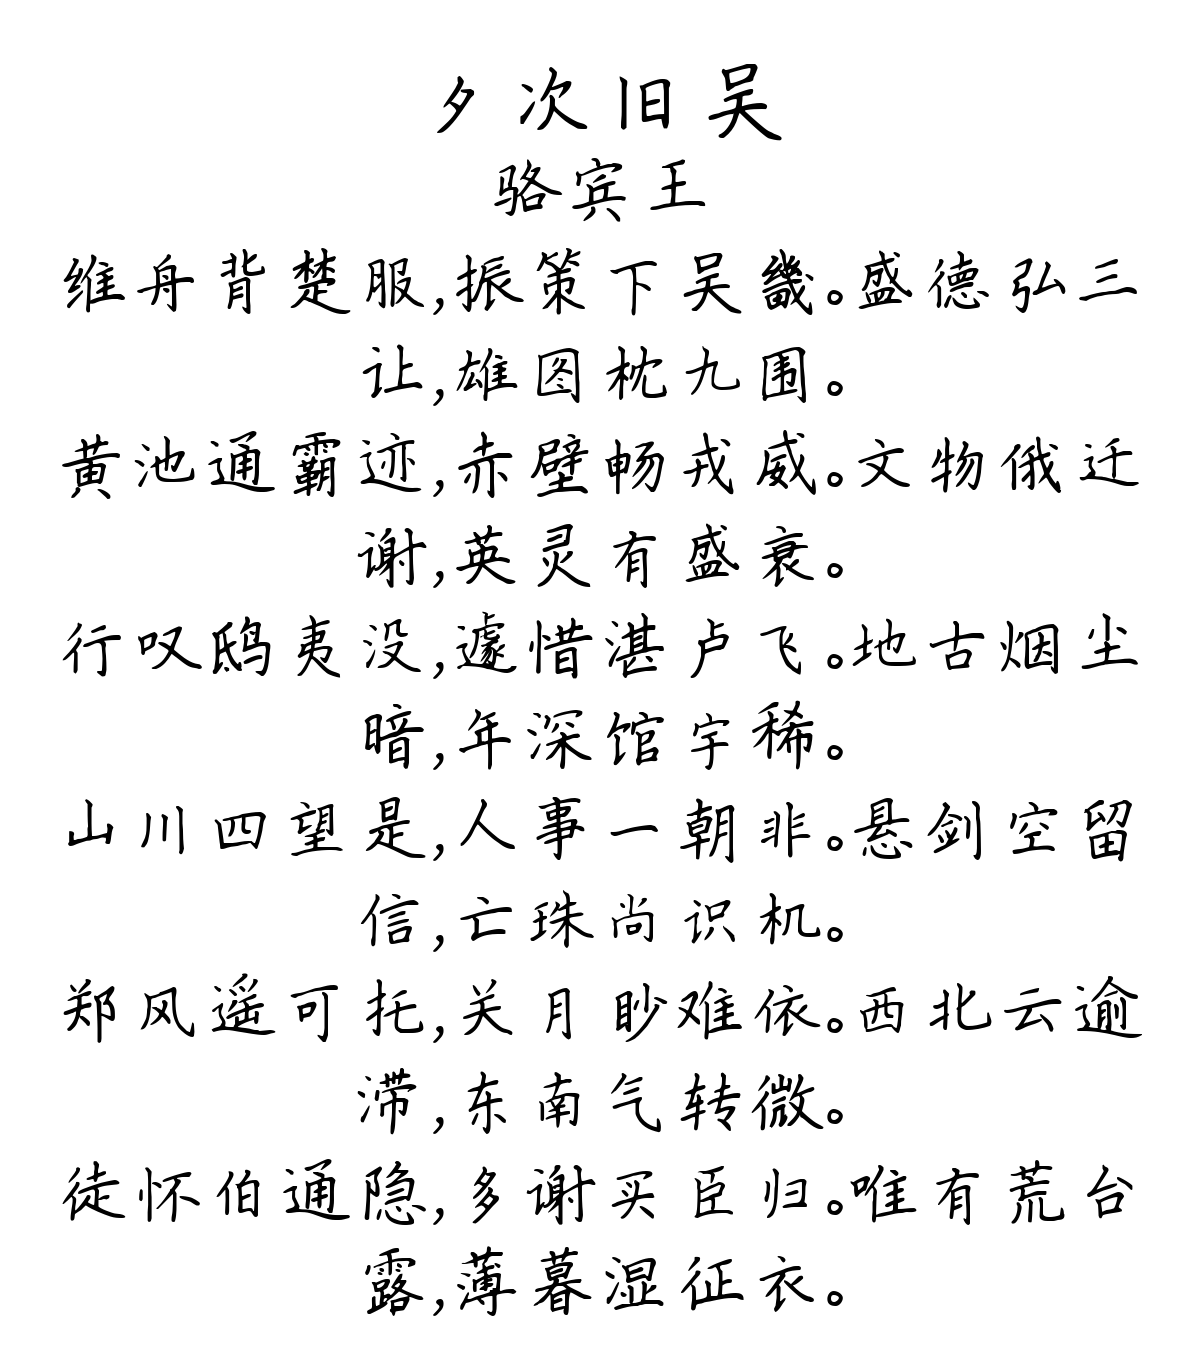 夕次旧吴
骆宾王
维舟背楚服,振策下吴畿。盛德弘三
让,雄图枕九围。
黄池通霸迹,赤壁畅戎威。文物俄迁
谢,英灵有盛衰。
行叹鸱夷没,遽惜湛卢飞。地古烟尘
暗,年深馆宇稀。
山川四望是,人事一朝非。悬剑空留
信,亡珠尚识机。
郑风遥可托,关月眇难依。西北云逾
滞,东南气转微。
徒怀伯通隐,多谢买臣归。唯有荒台
露,薄暮湿征衣。